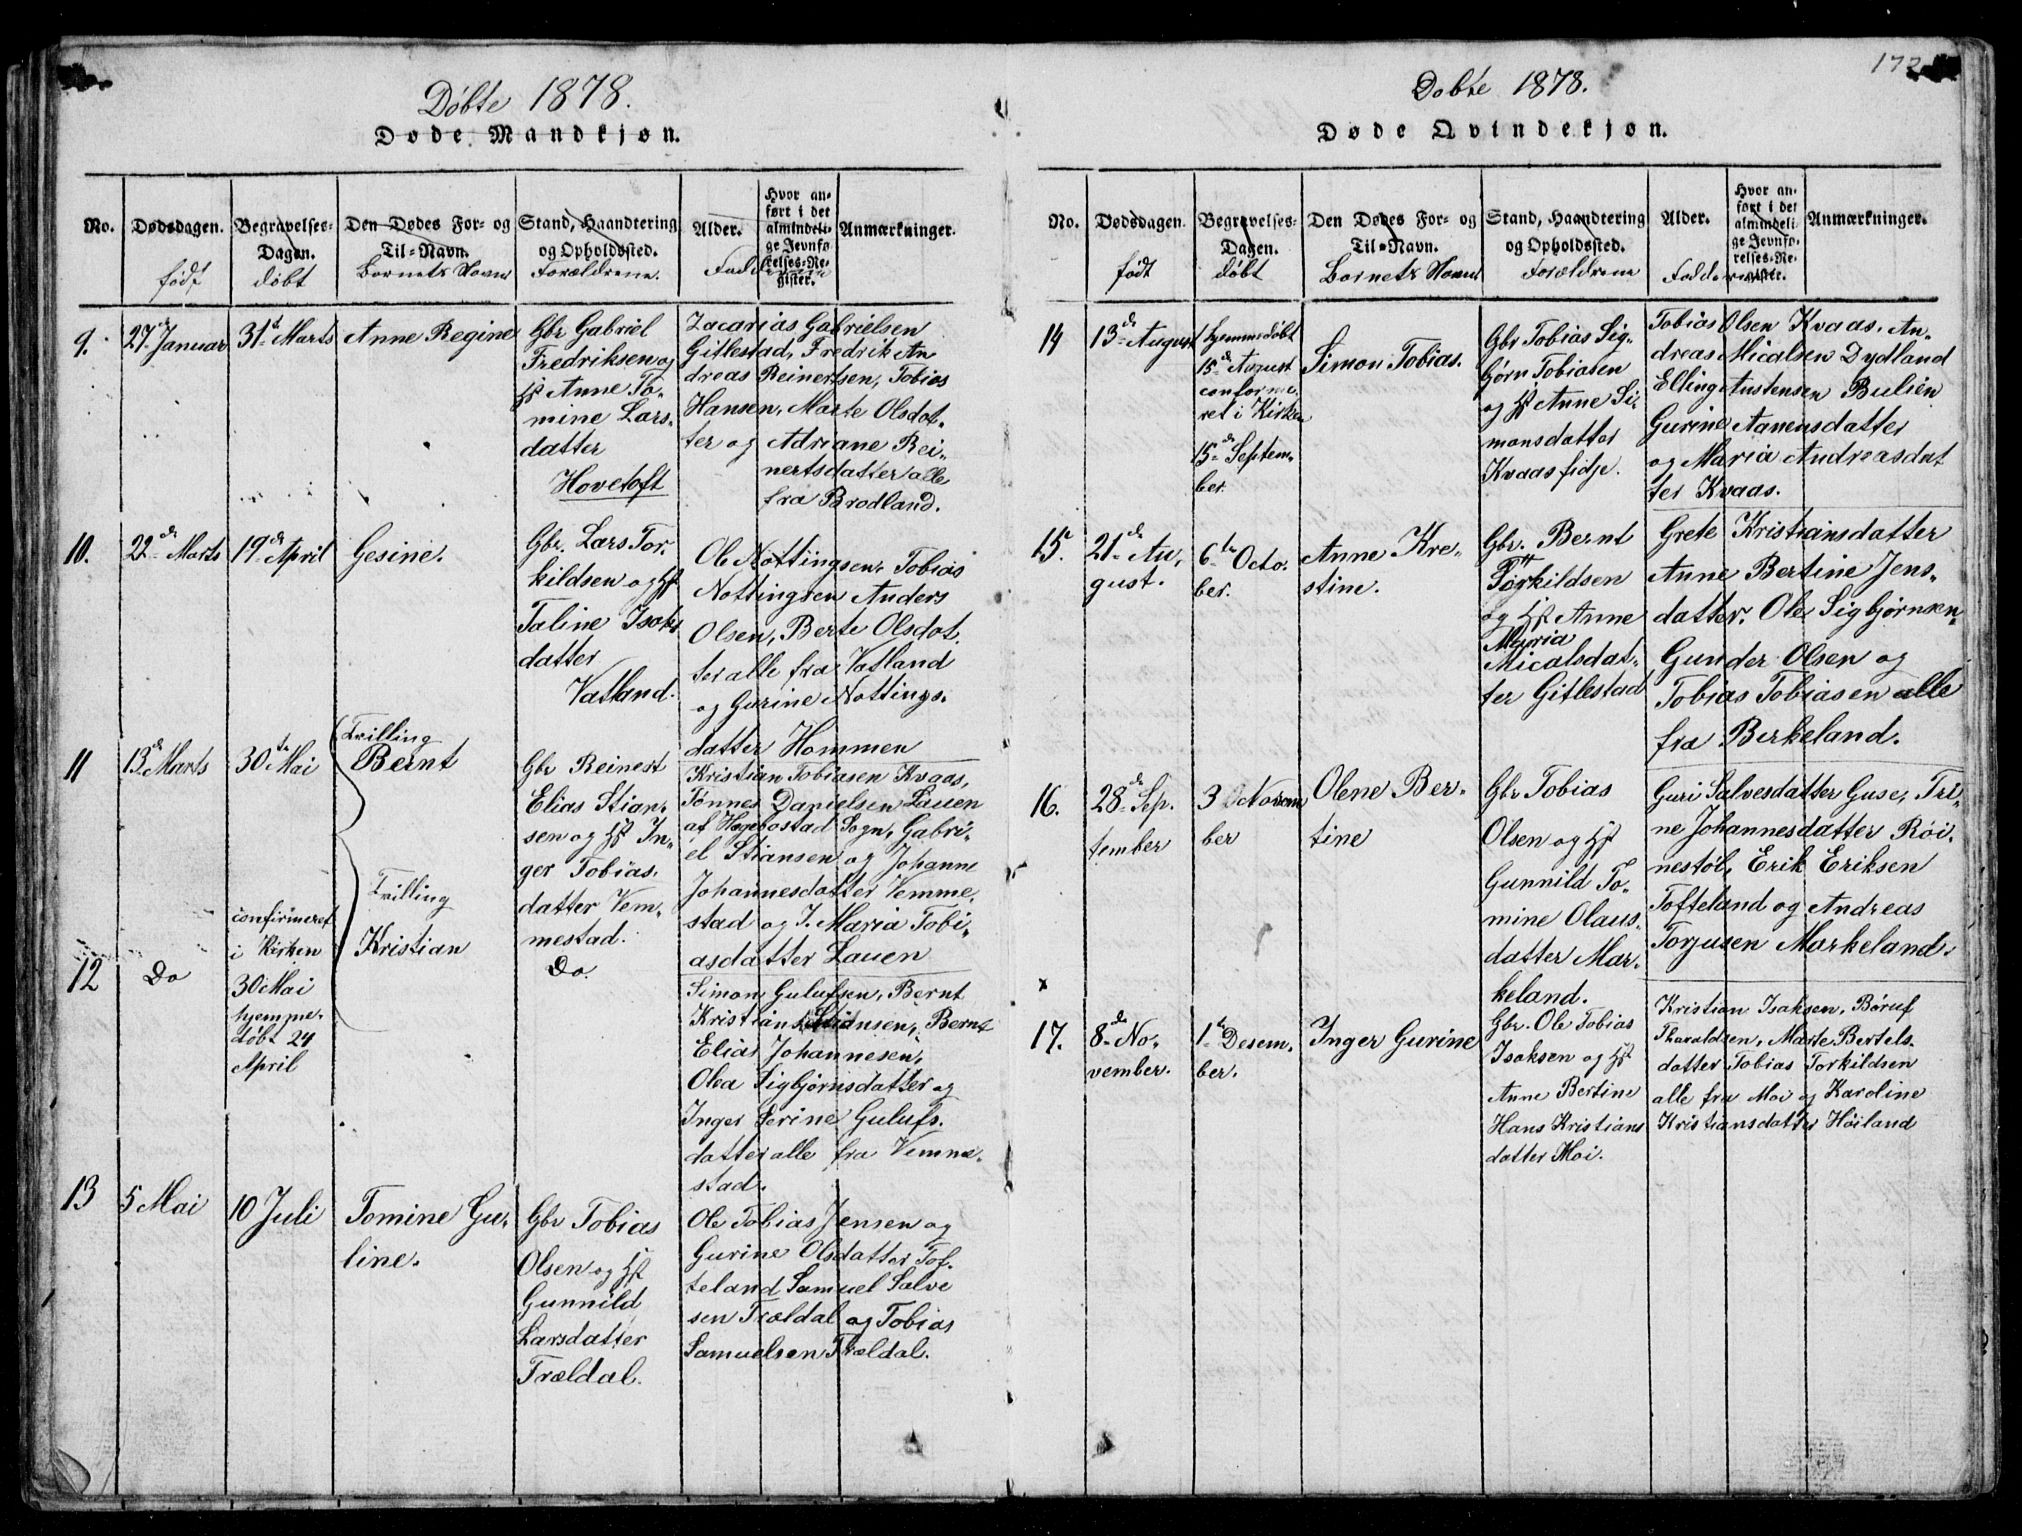 Døbte 1878.
Døde Mandkjøn.
No.
Dødsdagen.
født
Begravelses-
Dagen.
døbt
Den Dødes For- og
Til-Navn.
Barnets Navn
Stand, Haandtering
og Opholdssted.
Forældrene.
Alder.
Faddererne
Hvor an-
ført i det
almindeli-
ge Jevnfø-
relses-Re-
gister.
Anmærkninger.
9.
27de Januar
31te Marts
Anne Regine
Gbr Gabriel
Fredriksen og
Hst Anne To-
mine Lars-
datter
Hovetoft
Zacarias Gabrielsen
Gitlestad, Fredrik An
dreas Reinertsen, Tobias
Hansen, Marte Olsdot-
ter og Adriane Rei-
nertsdatter alle
fra Brodland.
10.
22de Marts
19de April
Gesine.
Gbr. Lars Tor-
kildsen og Hst
Taline Isaks
datter
Vatland.
Ole Nottingsen, Tobias
Nottingsen Anders
Olsen, Berte Olsdot.
ter alle fra Vatland
og Gurine Nottings-
datter Hommen
11
13de Marts
30te Mai
Trilling
Bernt
Gbr Reinert
Elias Stian-
sen og Hst In-
ger Tobias-
datter Vem-
mestad.
Kristian Tobiasen Kvaas,
Tønnes Danielsen Lauen
af Hegebostad Sogn, Gabri-
el Stiansen og Johanne
Johannesdatter Vemme-
stad og I. Maria Tobi-
asdatter Lauen
12
Do
confirmeret
i Kirken
30 Mai
hjemme-
døbt 24
April
Trilling
Kristian
Do.
Simon Gulufsen, Bernt
Kristian Stiansen, Bernt
Elias Johannesen,
Olea Sigbjørnsdatter og
Inger Serine Gulufs-
datter alle fra Vemme-
stad.
13
5 Mai
10 Juli
Tomine Gu-
line.
Gbr Tobias
Olsen og Hst
Gunnild
Larsdatter
Trældal.
Ole Tobias Jensen og
Gurine Olsdatter Tof-
teland Samuel Salve
sen Trældal og Tobias
Samuelsen Trældal.
172
Døbte 1878.
Døde Qvindekjøn.
No.
Dødsdagen.
født
Begravelses-
Dagen.
døbt
Den Dødes For- og
Til-Navn.
Barnets Navn
Stand, Haandtering
og Opholdssted.
Forældrene
Alder.
Fadderne
Hvor an-
ført i det
almindeli-
ge Jevnfø-
relses-Re-
gister.
Anmærkninger.
14
13de August
hjemmedøbt
15de August
conforme-
ret i Kirken
15de Septem-
ber.
Simon Tobias.
Gbr Tobias Sig-
bjørn Tobiasen
og Hst Anne Si-
monsdatter
Kvaasfidje.
Tobias Olsen Kvaas, An-
dreas Micalsen Dydland
Elling Austensen Bulien
Gurine Aanensdatter
og Maria Andreasdat
ter Kvaas.
15.
21de Au-
gust.
6te Octo-
ber.
Anne Kre-
stine.
Gbr. Bernt
Torkildsen
og Hst Anne
Maria
Micalsdat-
ter Gitlestad
Grete Kristiansdatter
Anne Bertine Jens-
datter. Ole Sigbjørnsen,
Gunder Olsen og
Tobias Tobiasen alle
fra Berkeland.
16.
28de Sep-
tember
3 Novem
ber
Olene Ber-
tine
Gbr Tobias
Olsen og Hst
Gunnild To-
mine Olaus-
datter Mar-
keland.
Guri Salvesdatter Guse, Tri-
ne Johannesdatter Røi-
nestøl, Erik Eriksen
Tofteland og Andreas
Torjusen Markeland.
x
17.
8de No-
vember.
1te Desem-
ber.
Inger Gurine
Gbr. Ole Tobias
Isaksen og Hst
Anne Bertine
Hans Kristians
datter Moi.
Kristian Isaksen, Børuf
Tharaldsen, Marte Bertels-
datter Tobias Torkildsen
alle fra Moi og Karoline
Kristiansdatter Høiland